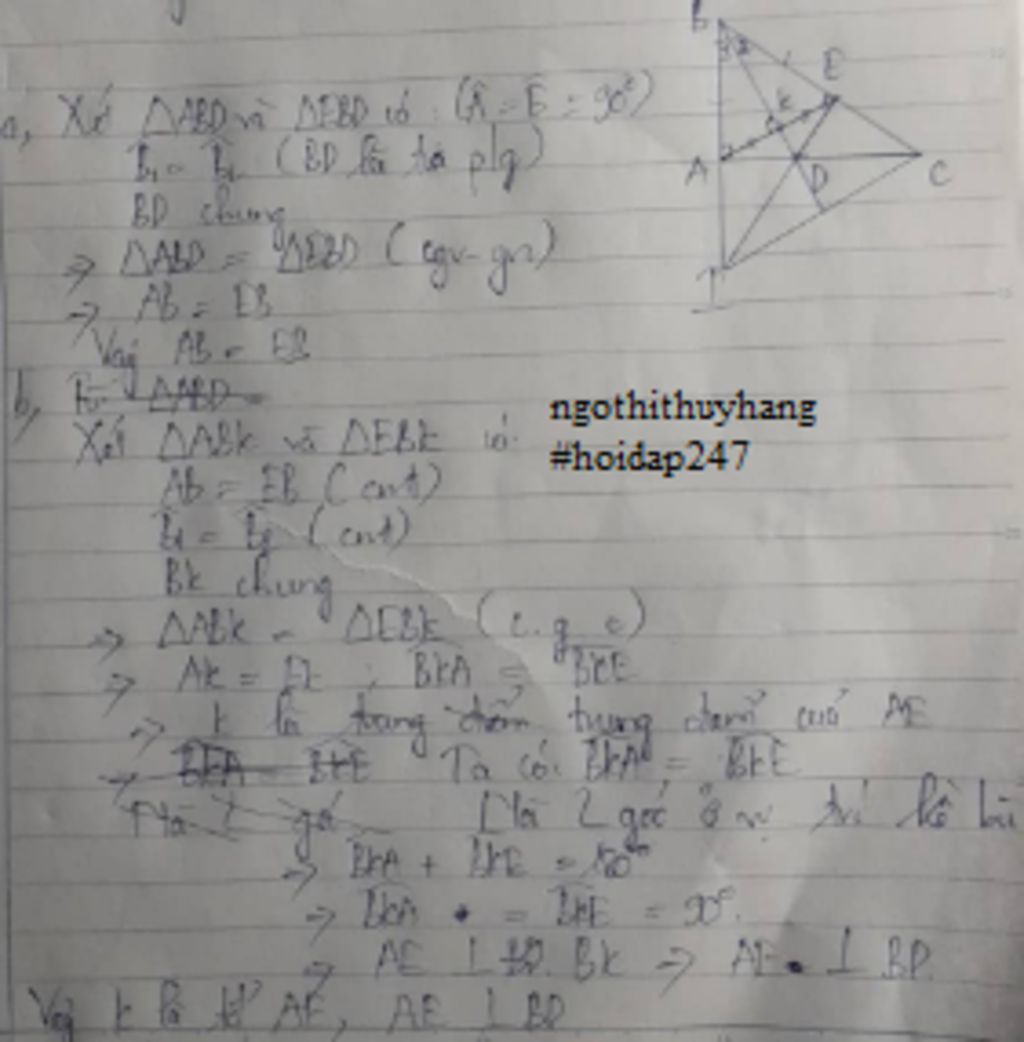 a, Xét △ABD và △EBD có : (Â = Ê = 90°)
B̂₁ = B̂₂ (BD là tia p/g)
BD chung
=> △ABD = △EBD (cgv - gn)
=> AB = EB
Vậy AB = EB
b, △ABD =
Xét △ABK và △EBK có
AB = EB (cmt)
B̂₁ = B̂₂ (cmt)
BK chung
=> △ABK = △EBK (c.g.c)
=> AK = EK ; BKA = BKE
=> K là trung điểm trung điểm của AE
=> BKA = BKE Ta có: BKA = BKE
Mà 2 gó Mà 2 góc ở vị trí kề bù
=> BKA + BKE = 180°
=> BKA = BKE = 90°
=> AE ⊥ BD. BK => AE ⊥ BD
Vậy K là tđ AE, AE ⊥ BD
B
E
K
A
D
C
I
ngothithuyhang
#hoidap247